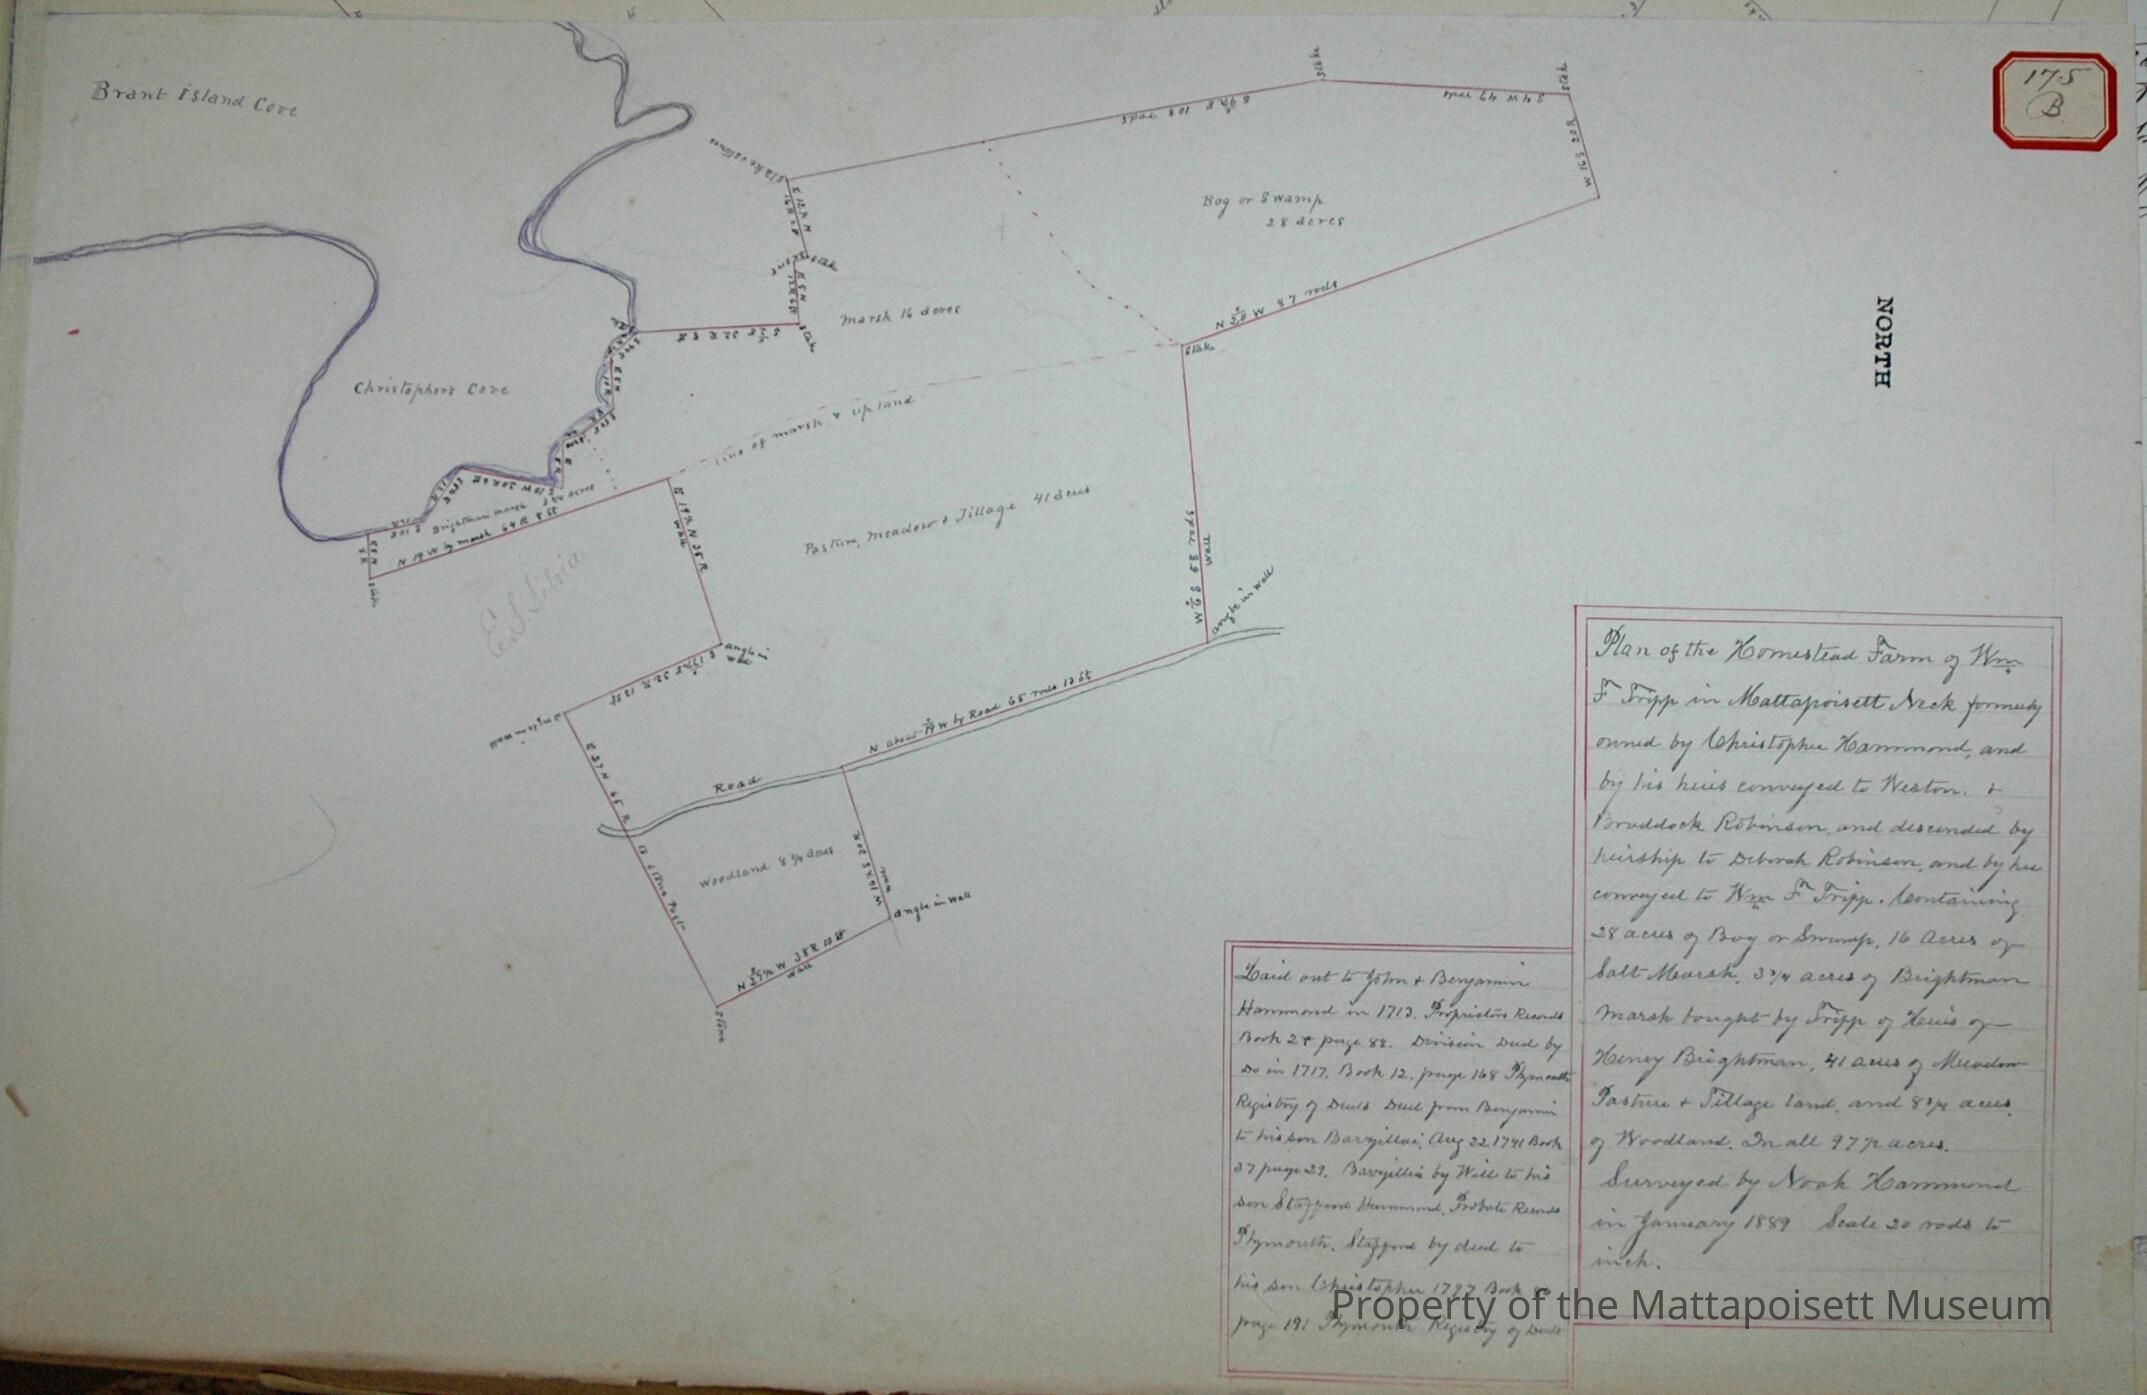 Brant Island Cove
175
B
Stake
Stake
S 4 W 47 rods
108 rods
W 16 S 20 R
Stake & stones
Bog or Swamp
28 acres
NORTH
Marsh 16 acres
N 20 W 87 rods
Stake
Stake
Christophers Cove
Line of marsh & upland
Brightman marsh 3 3/4 acres
N 19 W by marsh 64 R 8 ft
Stake
E. S. Silvia
Pasture, Meadow & Tillage 41 acres
Wall
Wall
angle in wall
angle in wall
angle in wall
N about 19 W by Road 65 rods 12 ft
Road
E 27 N 65 R
to stone Post
Woodland 8 3/4 acres
Wall
angle in wall
38 R 10 ft
Wall
Stone
Plan of the Homestead Farm of Wm
F Tripp in Mattapoisett Neck formerly
owned by Christopher Hammond, and
by his heirs conveyed to Weston. &
Braddock Robinson, and descended by
heirship to Deborah Robinson, and by her
conveyed to Wm F Tripp. Containing
28 acres of Bog or Swamp, 16 Acres of
Salt Marsh, 3 3/4 acres of Brightman
Marsh bought by Tripp of Heirs of
Henry Brightman, 41 acres of Meadow
Pasture & Tillage land, and 8 3/4 acres
of Woodland. In all 97 1/2 acres.
Surveyed by Noah Hammond
in January 1889 Scale 20 rods to
inch.
Laid out to John & Benjamin
Hammond in 1713. Proprietors Records
Book 2 page 88. Division Deed by
Do in 1717. Book 12. page 168 Plymouth
Registry of Deeds Deed from Benjamin
to his son Barzillai, Aug 22 1741 Book
37 page 29. Barzillia by Will to his
son Stafford Hammond, Probate Records
Plymouth. Stafford by deed to
his son Christopher 1797 Book
page 191 Plymouth Registry of Deeds
Property of the Mattapoisett Museum